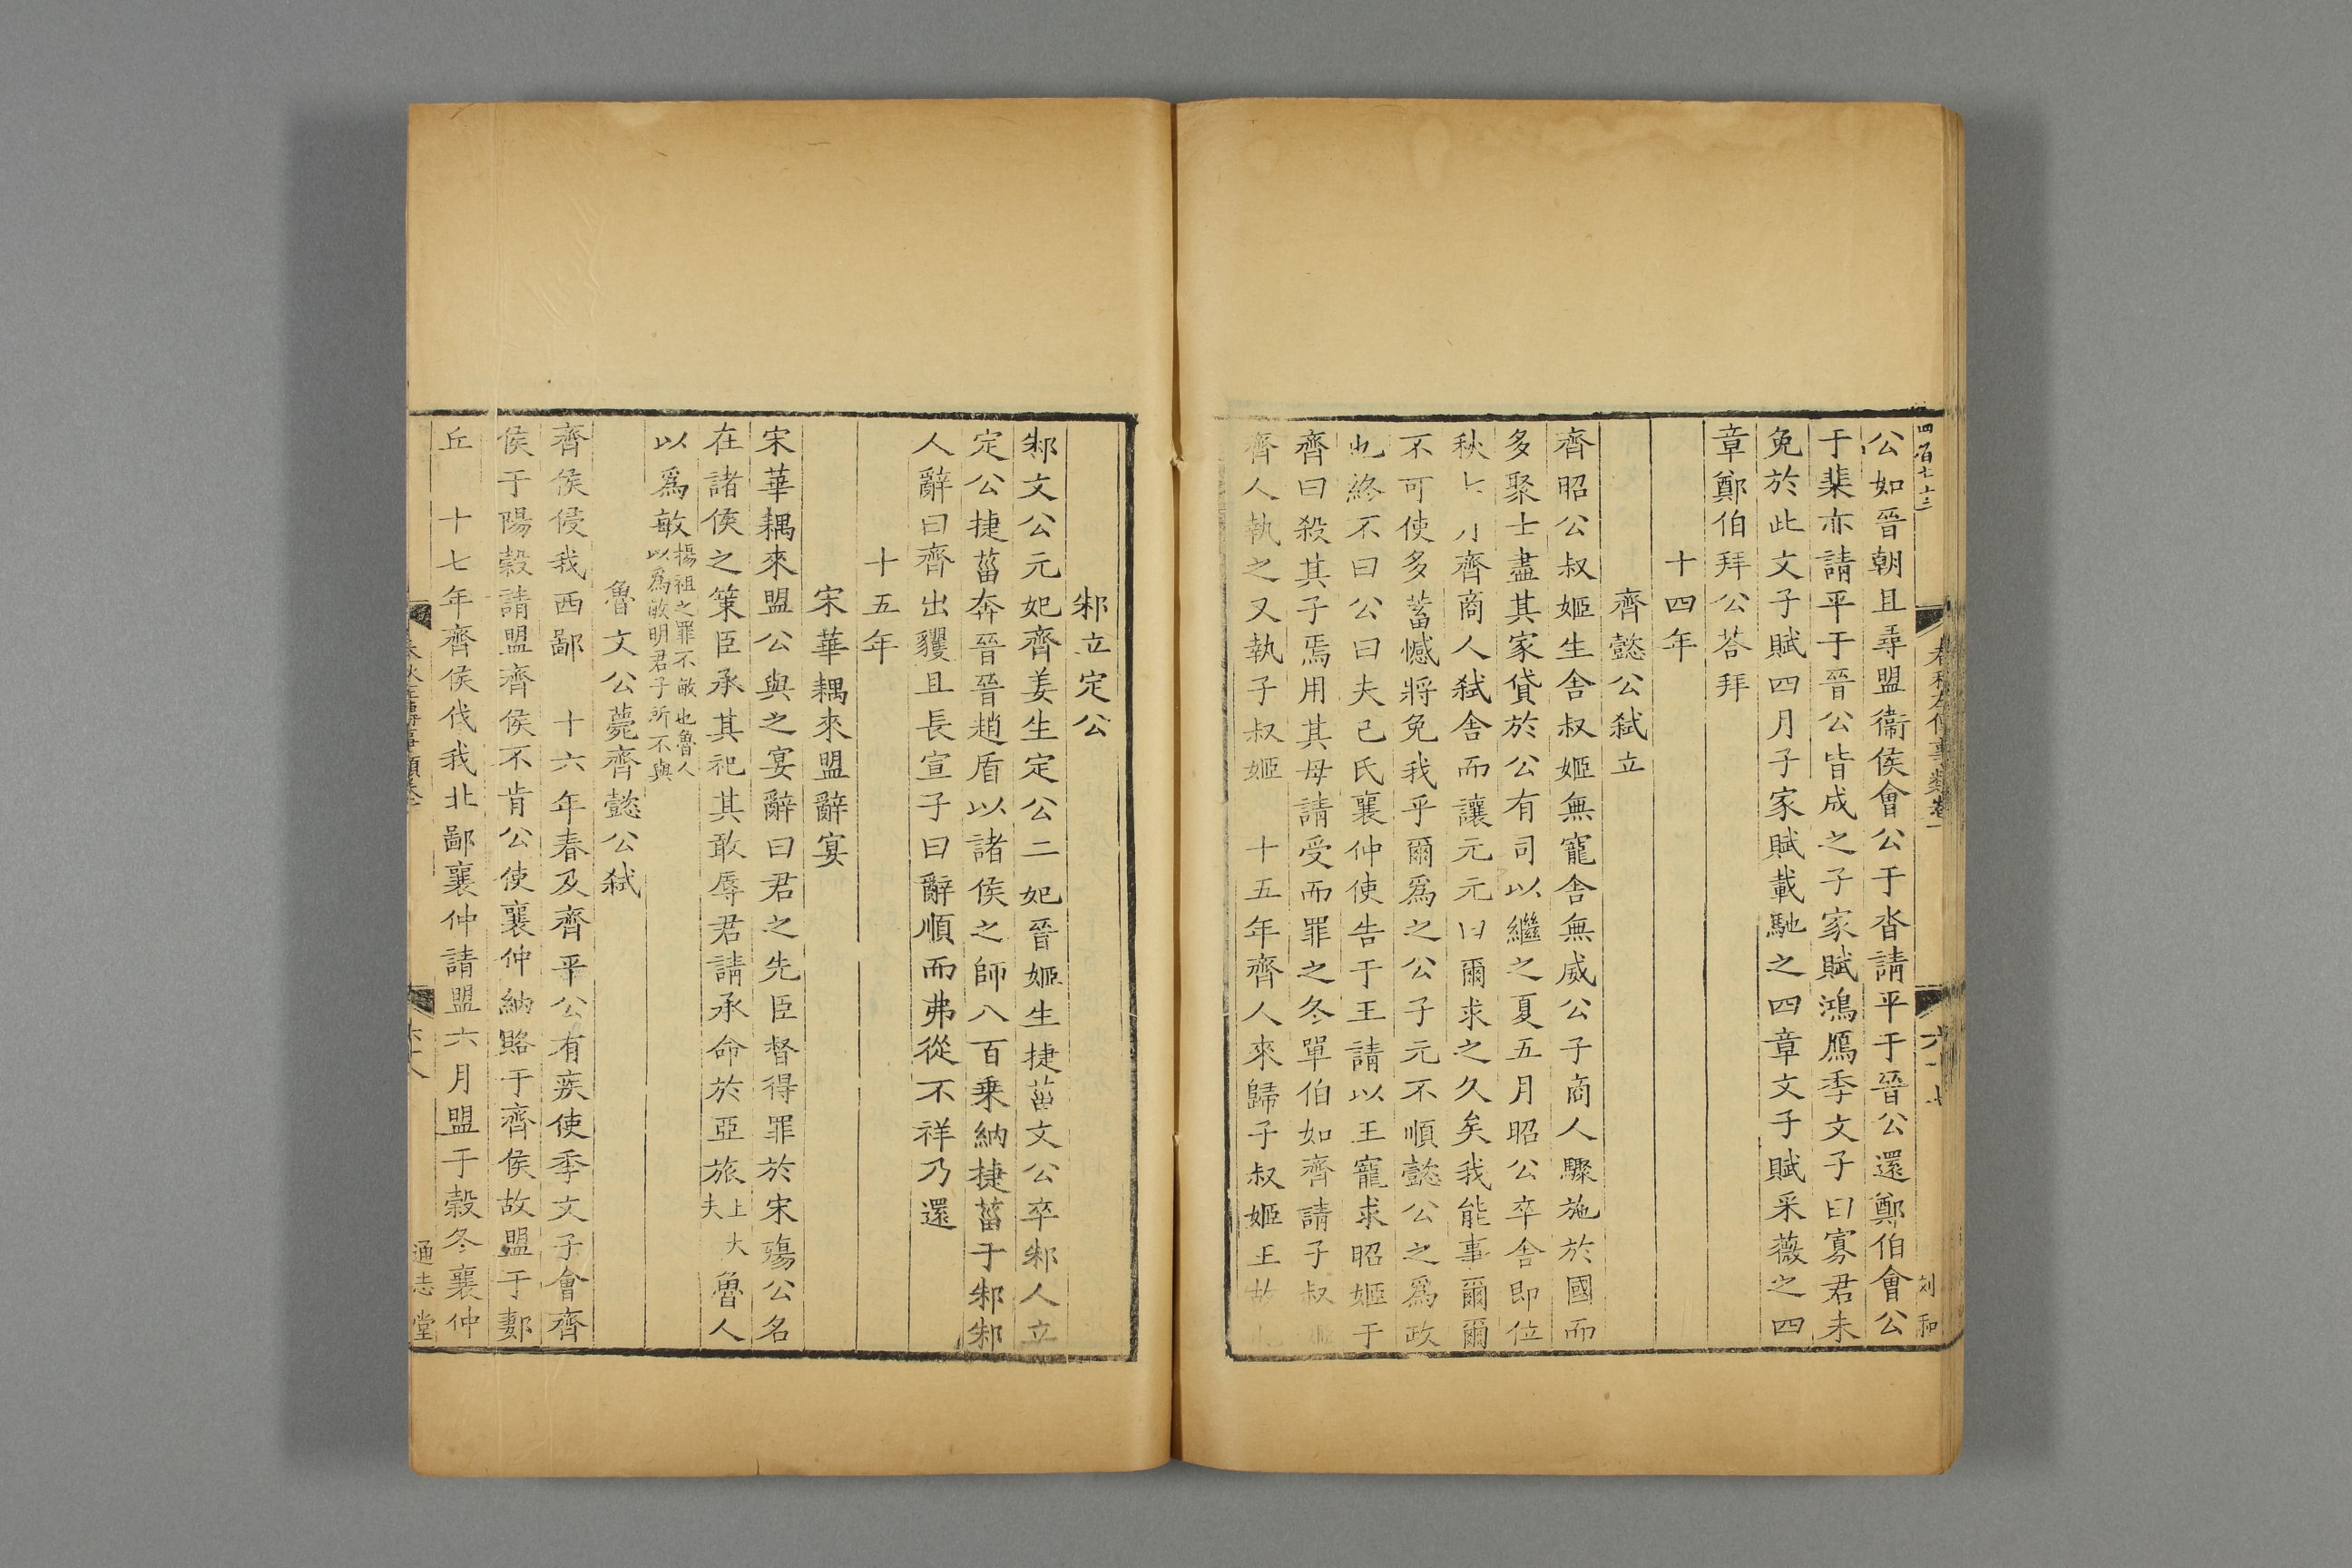 四百七十三
公如晉朝且尋盟衞侯會公于沓請平于晉公還鄭伯會公
于棐亦請平于晉公皆成之子家賦鴻鴈季文子曰寡君未
免於此文子賦四月子家賦載馳之四章文子賦采薇之四
章鄭伯拜公荅拜
十四年
齊懿公弑立
齊昭公叔姬生舍叔姬無寵舍無威公子商人驟施於國而
多聚士盡其家貸於公有司以繼之夏五月昭公卒舍即位
秋七月齊商人弑舍而讓元元曰爾求之久矣我能事爾爾
不可使多蓄憾將免我乎爾爲之公子元不順懿公之爲政
也終不曰公曰夫己氏襄仲使告于王請以王寵求昭姬于
齊曰殺其子焉用其母請受而罪之冬單伯如齊請子叔姬
齊人執之又執子叔姬　十五年齊人來歸子叔姬王故也
春秋左傳事類卷一
六十七
刘和
邾立定公
邾文公元妃齊姜生定公二妃晉姬生捷菑文公卒邾人立
定公捷菑奔晉晉趙盾以諸侯之師八百乗納捷菑于邾邾
人辭曰齊出貜且長宣子曰辭順而弗從不祥乃還
十五年
宋華耦來盟辭宴
宋華耦來盟公與之宴辭曰君之先臣督得罪於宋殤公名
在諸侯之策臣承其祀其敢辱君請承命於亞旅上大夫魯人
以爲敏揚祖之罪不敏也魯人以爲敏明君子所不與
魯文公薨齊懿公弑
齊侯侵我西鄙　十六年春及齊平公有疾使季文子會齊
侯于陽糓請盟齊侯不肯公使襄仲納賂于齊侯故盟于郪
丘　十七年齊侯伐我北鄙襄仲請盟六月盟于糓冬襄仲
六十八
通志堂